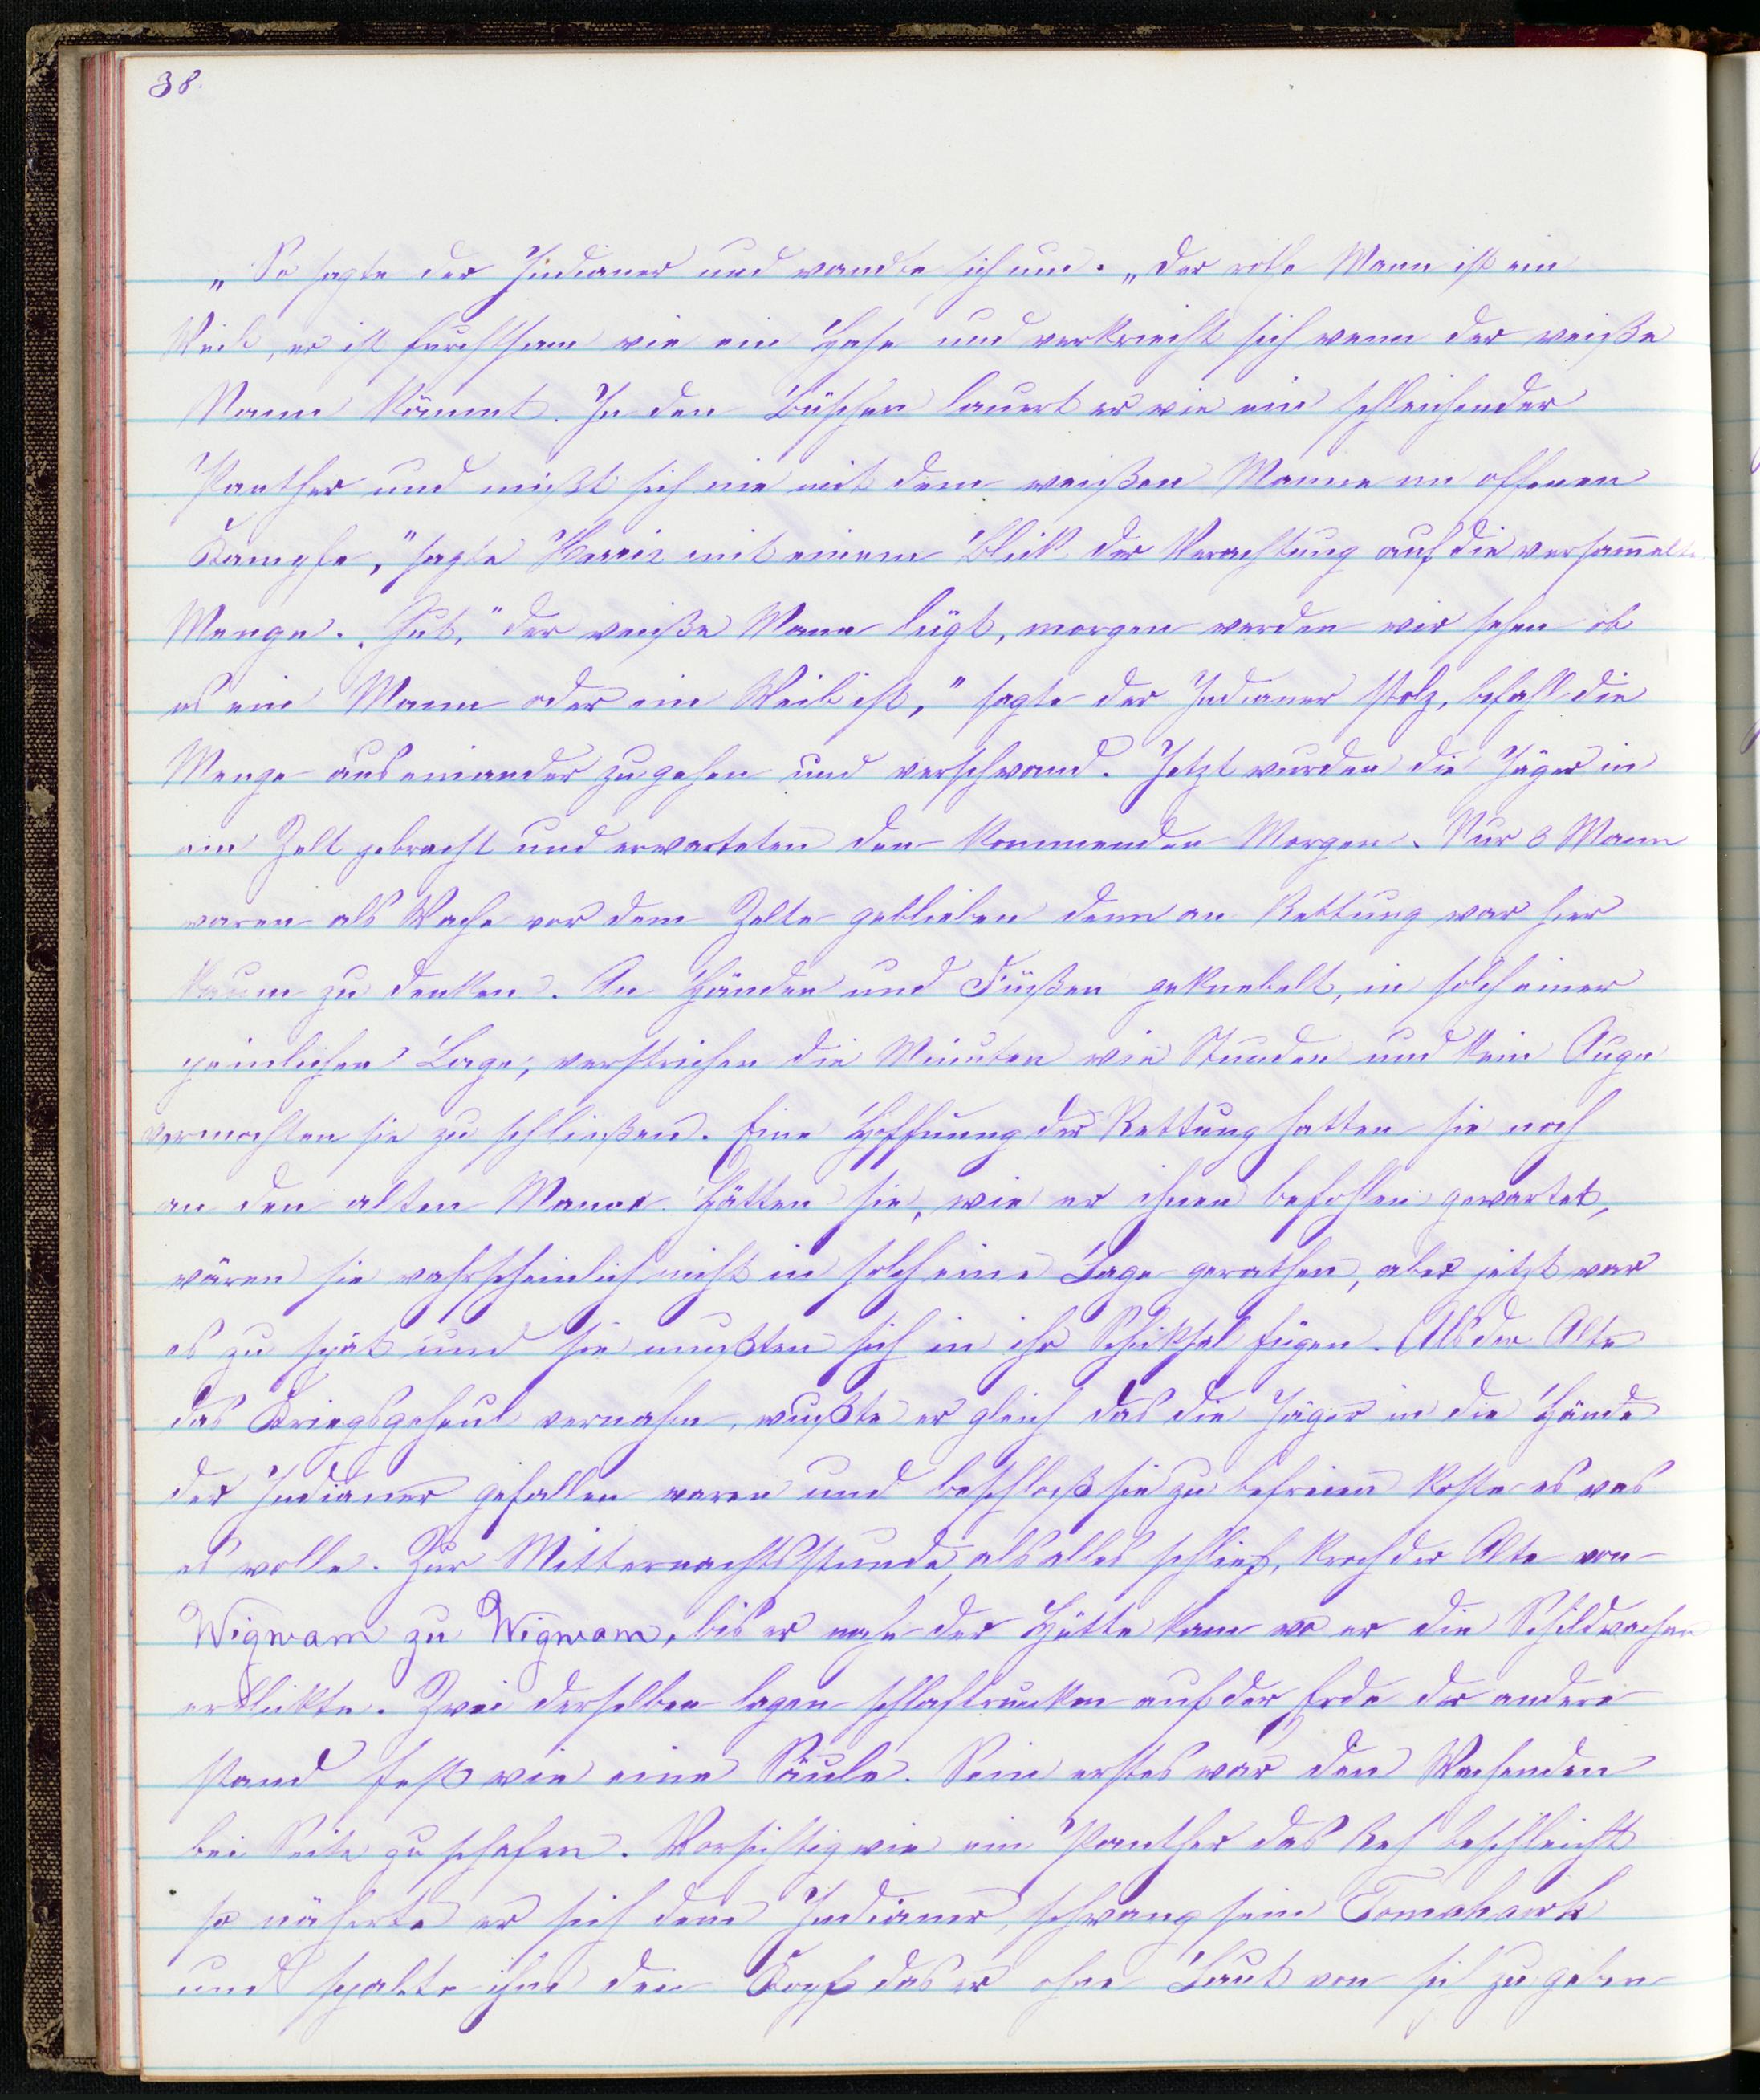 38.
„ So sagte der Indianer und wandte sich um. „Der rothe Mann ist ein
Weib, er ist furchtsam wie ein Hase und verkriecht sich wenn der weiße
Mann kömmt. In den Büschen lauert er wie ein schleichender
Panther und mißt sich nie mit dem weißen Manne im offenen
Kampfe," sagte Harris mit einem Blick der Verachtung auf die versam̅elte
Menge. „Gut," der weiße Mann lügt, morgen werden wir sehen ob
es ein Mann oder ein Weib ist," sagte der Indianer stolz, befahl die
Menge auseinander zu gehen und verschwand. Jetzt wurden die Jäger in
ein Zelt gebracht und erwarteten den kommenden Morgen. Nur 3 Mann
waren als Wache vor dem Zelte geblieben denn an Rettung war hier
kaum zu denken. An Händen und Füßen geknebelt, in solch einer
peinlichen Lage, verstrichen die Minuten wie Stunden und kein Auge
vermochten sie zu schließen. Eine Hoffnung der Rettung hatten sie noch
an den alten Manne. Hätten sie, wie er ihnen befohlen gewartet,
wären sie wahrscheinlich nicht in solch eine Lage gerathen, aber jetzt war
es zu spät und sie mußten sich in ihr Schiksal fügen. Als der Alte
das Kriegsgeheul vernahm, wußte er gleich das die Jäger in die Hände
der Indianer gefallen waren und beschloß sie zu befreien koste es was
es wolle. Zur Mitternachtsstunde, als alles schlief, kroch der Alte von
Wigwam zu Wigwam, bis er nahe der Hütte kam wo er die Schildwachen
erblikte. Zwei derselben lagen schlaftrunken auf der Erde der andere
stand fest wie eine Säule. Sein erstes war den Wachenden
bei Seite zu schafen. Vorsichtig wie ein Panther das Reh beschleicht
so näherte er sich dem Indianer, schwang sein Tomahawk
und spalte ihm den Kopf das er ohne Laut von sich zu geben